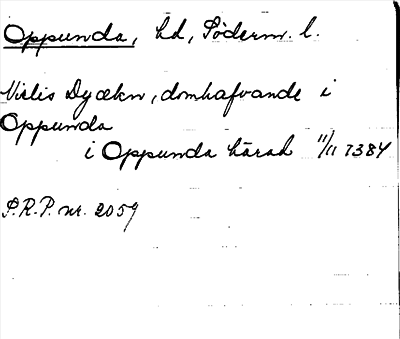 Oppunda, hd, Söderm. l.
Nielis Dyækn, domhafvande i
Oppunda
i Oppunda härad 11/11 1384
S.R.P. nr. 2059